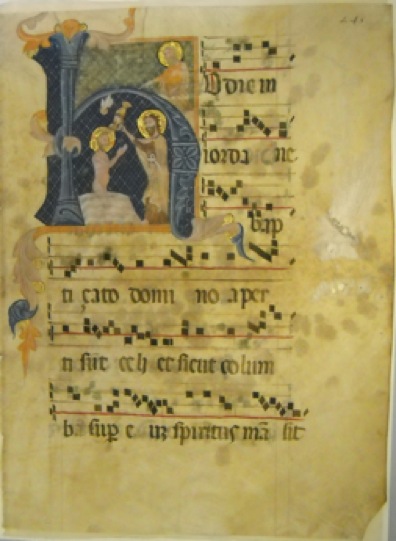 H odie in
iorda ne
bap
ti çato domi no aper
ti sūt celi et sicut colum
ba sup e uz spiritus mā sit